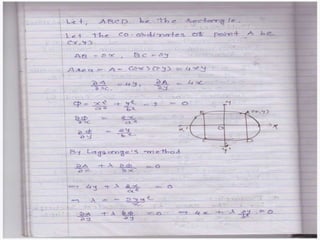 Let, ABCD be the rectangle.
Let the co-ordinates of point A be
(x,y)
AB = 2x, BC = 2y
Area = A = (2x)(2y) = 4xy
∂A/∂x = 4y, ∂A/∂y = 4x
Φ = x²/a² + y²/b² - 1 = 0
∂Φ/∂x = 2x/a²
∂Φ/∂y = 2y/b²
By Lagrange's method
∂A/∂x + λ ∂Φ/∂x = 0
⇒ 4y + λ 2x/a² = 0
⇒ λ = -
∂A/∂y + λ ∂Φ/∂y = 0 ⇒ 4x + λ 2y/b² = 0